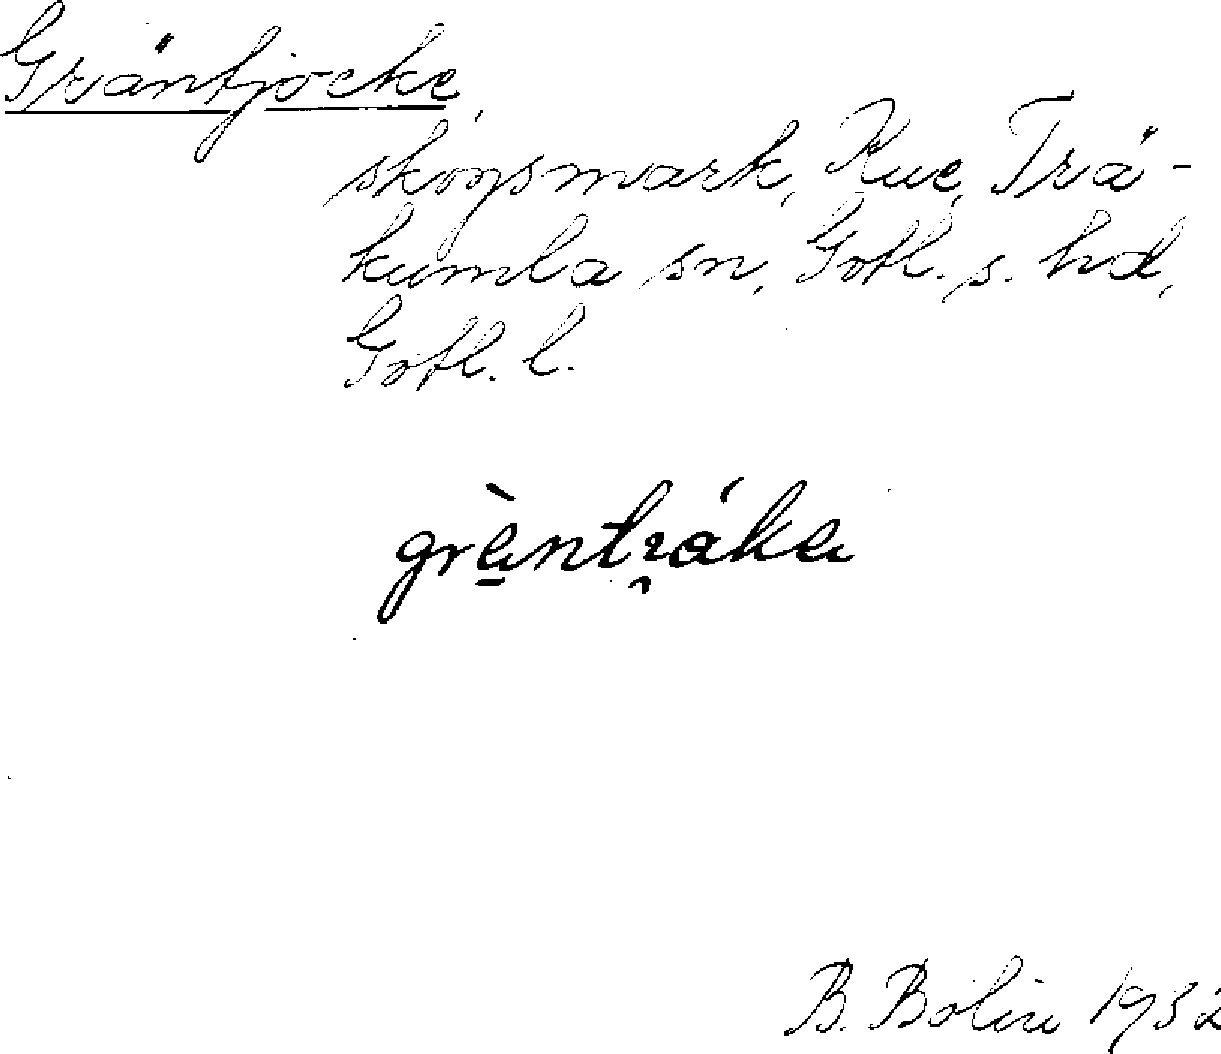 Gräntjocke,
skogsmark, Kue, Trä-
kumla sn, Gotl. s. hd,
Gotl. l.
B. Bolin 1932